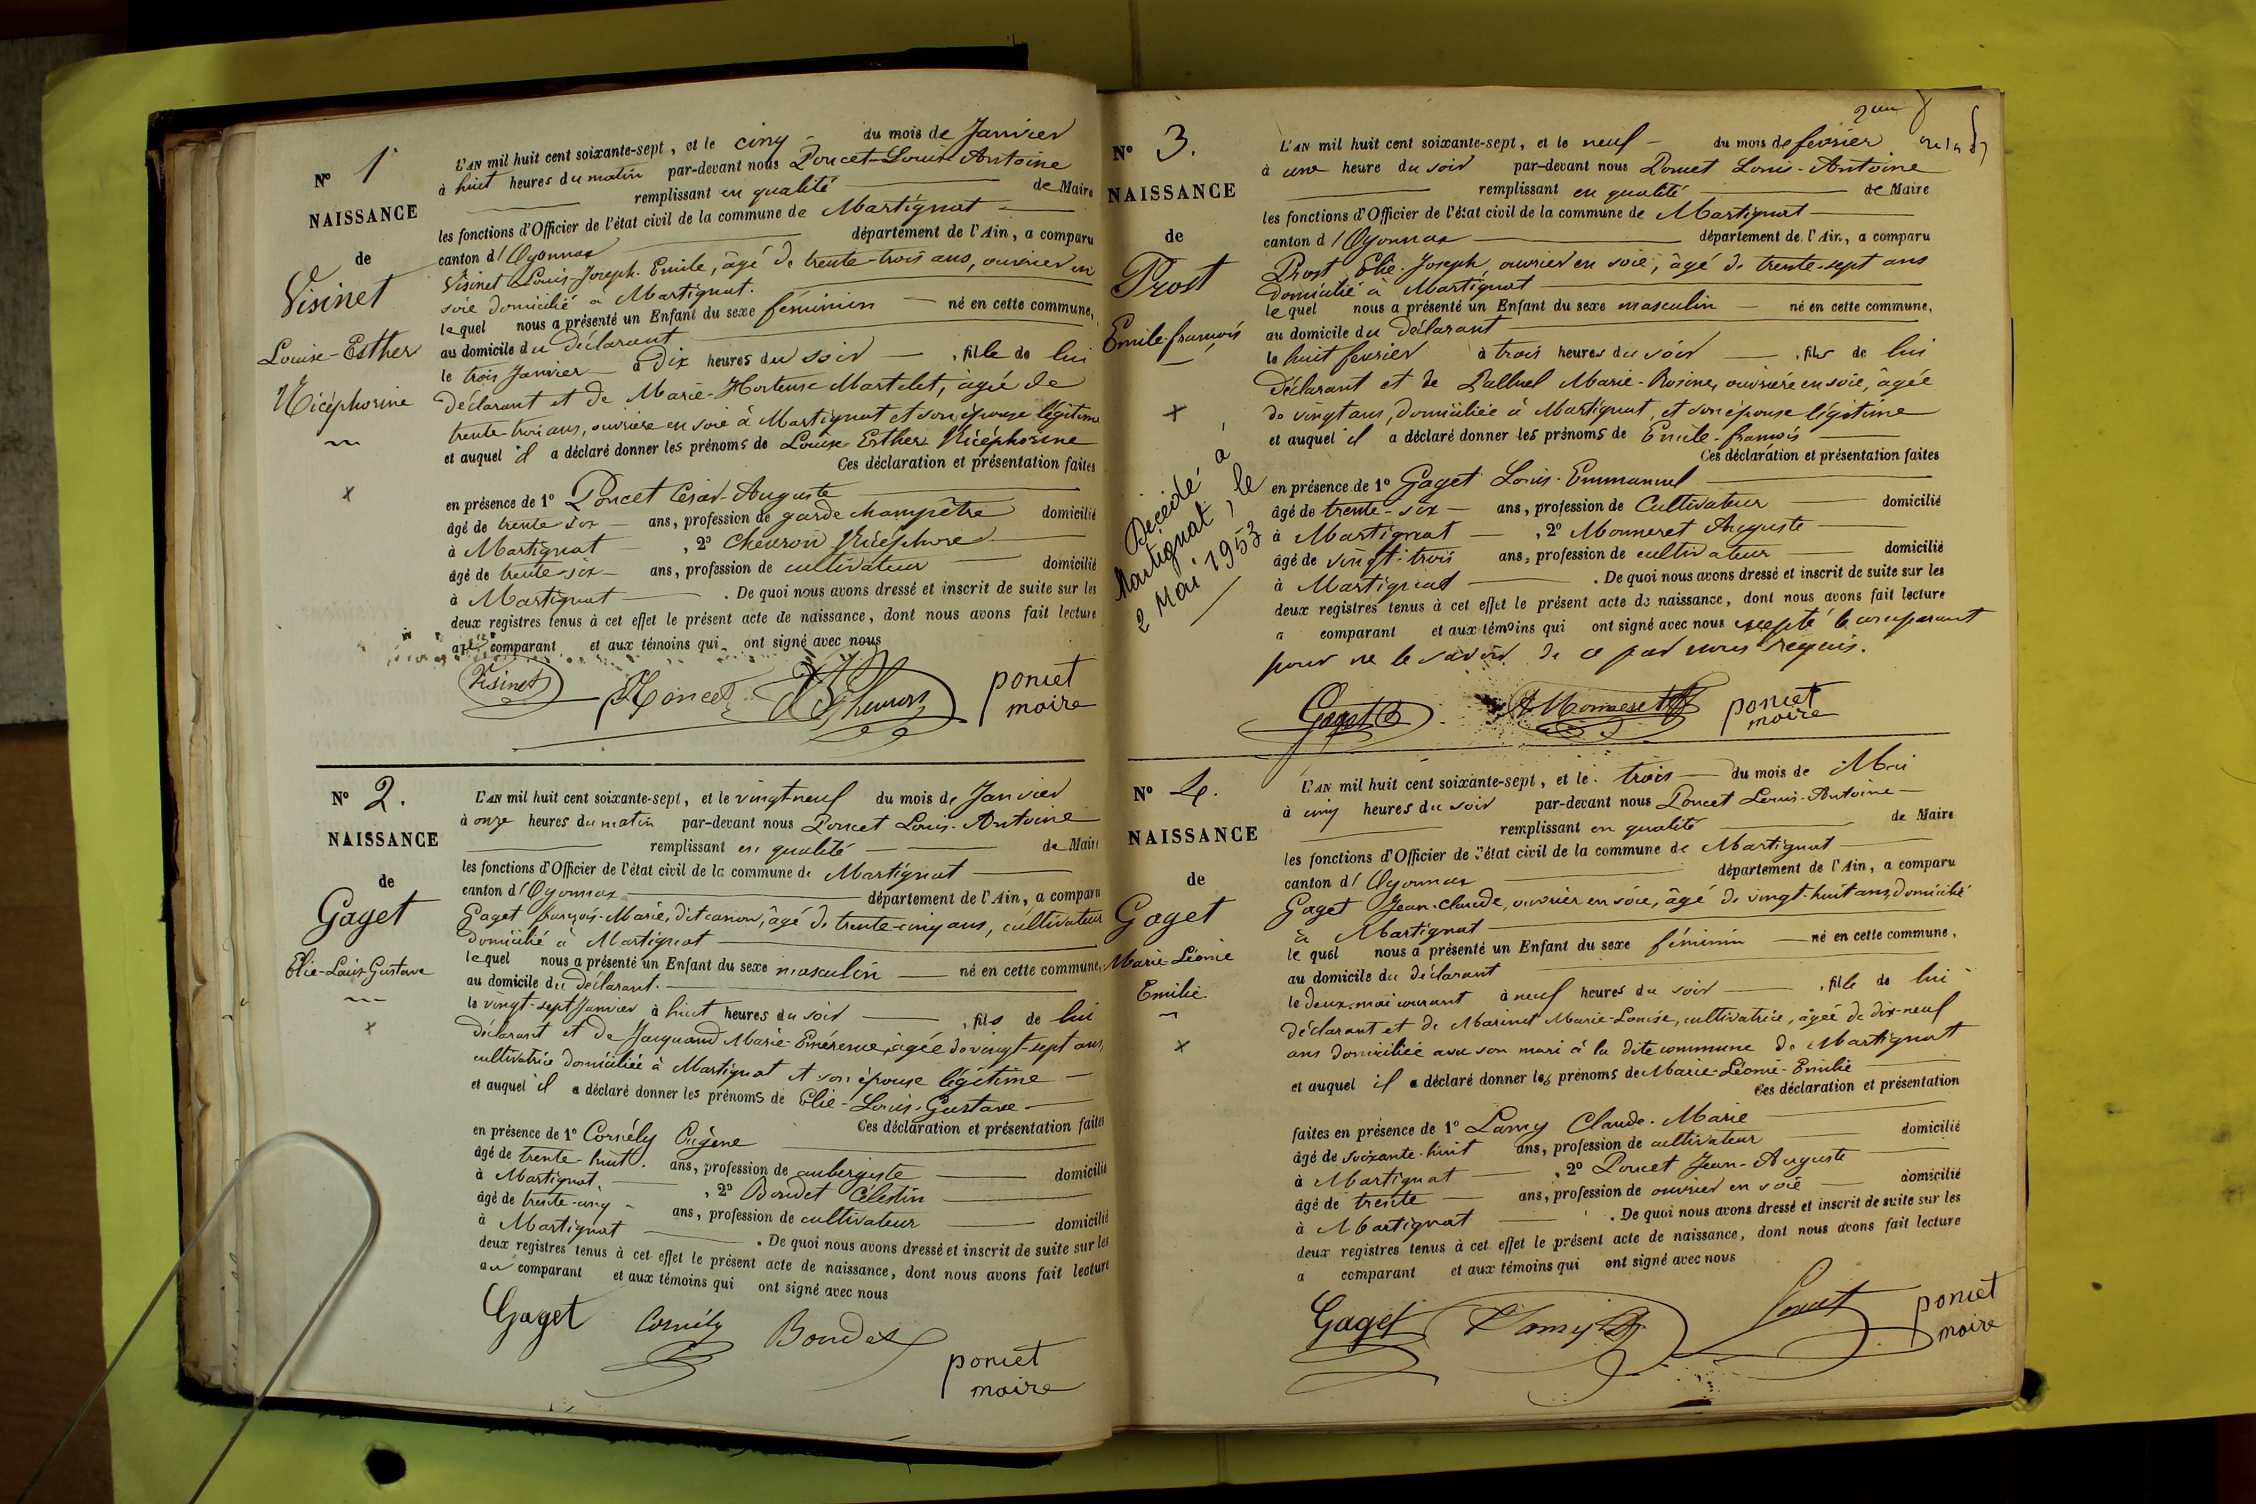 N° 1
NAISSANCE
de
Visinet
Louise-Esther
Nicéphorine
L'AN mil huit cent soixante-sept, et le cinq du mois de Janvier
à huit heures du matin par-devant nous Poncet Louis Antoine
remplissant en qualité de Maire
les fonctions d'Officier de l'état civil de la commune de Martignat
canton d'Oyonnax département de l'Ain, a comparu
Visinet Louis Joseph Emile, âgé de trente-trois ans, ouvrier en
soie domicilié à Martignat.
lequel nous a présenté un Enfant du sexe féminin né en cette commune,
au domicile du déclarant
le trois Janvier à dix heures du soir, fille de lui
déclarant et de Marie-Hortense Martelet, âgée de
trente trois ans, ouvrière en soie à Martignat et son épouse légitime
et auquel il a déclaré donner les prénoms de Louise-Esther Nicéphorine
Ces déclaration et présentation faites
en présence de 1° Poncet César-Auguste
âgé de trente six ans, profession de garde champêtre domicilié
à Martignat, 2° Chevron Nicéphore
âgé de trente-six ans, profession de cultivateur domicilié
à Martignat. De quoi nous avons dressé et inscrit de suite sur les
deux registres tenus à cet effet le présent acte de naissance, dont nous avons fait lecture
comparant et aux témoins qui ont signé avec nous
Visinet Poncet Chevron poncet
maire
N° 2.
NAISSANCE
de
Gaget
Elie-Louis-Gustave
L'AN mil huit cent soixante-sept, et le vingt neuf du mois de Janvier
à onze heures du matin par-devant nous Poncet Louis-Antoine
remplissant en qualité de Maire
les fonctions d'Officier de l'état civil de la commune de Martignat
canton d'Oyonnax département de l'Ain, a comparu
Gaget françois-Marie, dit canon, âgé de trente-cinq ans, cultivateur
domicilié à Martignat
lequel nous a présenté un Enfant du sexe masculin né en cette commune,
au domicile du déclarant.
le vingt-sept Janvier à huit heures du soir, fils de lui
déclarant et de Jacquand Marie-Emérence, âgée de vingt-sept ans,
cultivatrice domiciliée à Martignat et son épouse légitime
et auquel il a déclaré donner les prénoms de Elie-Louis-Gustave
Ces déclaration et présentation faites
en présence de 1° Cornély Eugène
âgé de trente-huit. ans, profession de aubergiste domicilié
à Martignat, 2° Boudet Célestin
âgé de trente-cinq ans, profession de cultivateur domicilié
à Martignat. De quoi nous avons dressé et inscrit de suite sur les
deux registres tenus à cet effet le présent acte de naissance, dont nous avons fait lecture
au comparant et aux témoins qui ont signé avec nous
Gaget Cornély Boudet
poncet
maire
N° 3.
NAISSANCE
de
Prost
Emile-françois
Décédé à
Martignat, le
2 Mai 1953
L'AN mil huit cent soixante-sept, et le neuf du mois de février
à une heure du soir par-devant nous Poncet Louis-Antoine
remplissant en qualité de Maire
les fonctions d'Officier de l'état civil de la commune de Martignat
canton d'Oyonnax département de l'Ain, a comparu
Prost Elie-Joseph, ouvrier en soie, âgé de trente-sept ans
domicilié à Martignat
lequel nous a présenté un Enfant du sexe masculin né en cette commune,
au domicile du déclarant
le huit février à trois heures du soir, fils de lui
déclarant et de Palluel Marie-Rosine, ouvrière en soie, âgée
de vingt ans, domiciliée à Martignat, et son épouse légitime
et auquel il a déclaré donner les prénoms de Emile-françois
Ces déclaration et présentation faites
en présence de 1° Gaget Louis-Emmanuel
âgé de trente-six ans, profession de Cultivateur domicilié
à Martignat, 2° Monneret Auguste
âgé de vingt-trois ans, profession de cultivateur domicilié
à Martignat. De quoi nous avons dressé et inscrit de suite sur les
deux registres tenus à cet effet le présent acte de naissance, dont nous avons fait lecture
a comparant et aux témoins qui ont signé avec nous excepté le comparant
pour ne le savoir de ce par nous requis.
Gaget A. Monneret poncet
maire
N° 4.
NAISSANCE
de
Gaget
Marie-Léonie
Emilie
L'AN mil huit cent soixante-sept, et le trois du mois de Mai
à cinq heures du soir par-devant nous Poncet Louis-Antoine
remplissant en qualité de Maire
les fonctions d'Officier de l'état civil de la commune de Martignat
canton d'Oyonnax département de l'Ain, a comparu
Gaget Jean-Claude, ouvrier en soie, âgé de vingt-huit ans, domicilié
à Martignat
lequel nous a présenté un Enfant du sexe féminin né en cette commune,
au domicile du déclarant
le deux mai courant à neuf heures du soir, fille de lui
déclarant et de Marinet Marie-Louise, cultivatrice, âgée de dix-neuf
ans domiciliée avec son mari à la dite commune de Martignat
et auquel il a déclaré donner les prénoms de Marie-Léonie-Emilie
Ces déclaration et présentation
faites en présence de 1° Lamy Claude-Marie
âgé de soixante-huit ans, profession de cultivateur domicilié
à Martignat, 2° Poncet Jean-Auguste
âgé de trente ans, profession de ouvrier en soie domicilié
à Martignat. De quoi nous avons dressé et inscrit de suite sur les
deux registres tenus à cet effet le présent acte de naissance, dont nous avons fait lecture
a comparant et aux témoins qui ont signé avec nous
Gaget Lamy Poncet poncet
maire